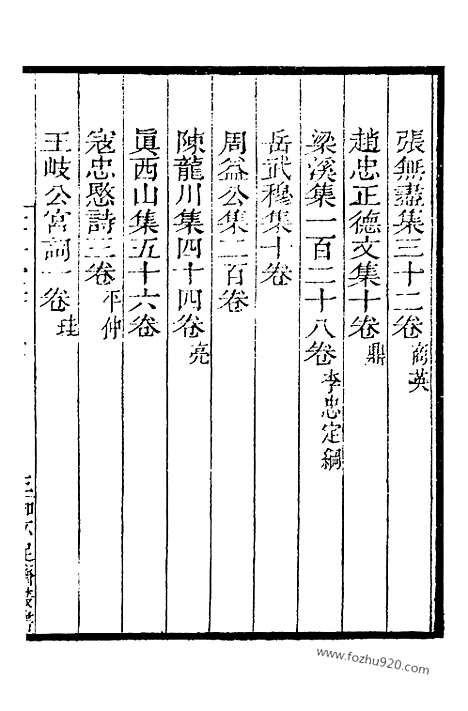 張無盡集三十二卷商英
趙忠正德文集十卷鼎
梁溪集一百二十八卷李忠定綱
岳武穆集十卷
周益公集二百卷
陳龍川集四十四卷亮
眞西山集五十六卷
寇忠愍詩三卷平仲
王岐公宮詞一卷珪
www.fozhu920.com